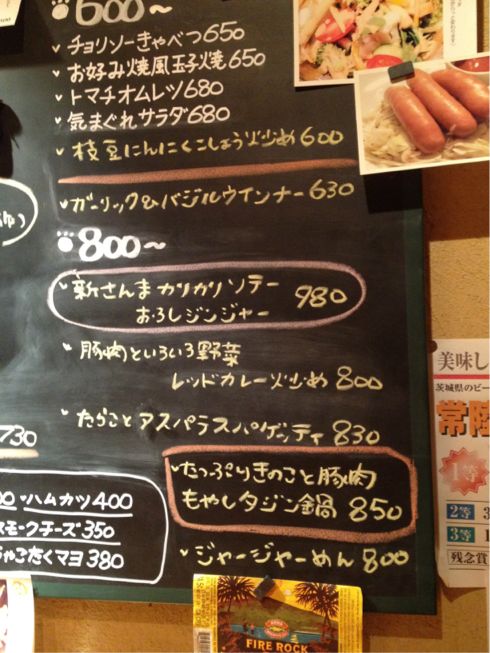 600〜
チョリソーきゃべつ 650
お好み焼風玉子焼 650
トマチオムレツ 680
気まぐれサラダ 680
枝豆にんにくこしょう炒め 600
ガーリック&バジルウインナー 630
800〜
新さんまカリカリソテー
おろしジンジャー 980
豚肉といろいろ野菜
レッドカレー炒め 800
たらことアスパラスパゲッティ 830
たっぷりきのこと豚肉
もやしタジン鍋 850
ジャージャーめん 800
730
・ハムカツ 400
スモークチーズ 350
ちゃこたくマヨ 380
美味し
茨城県のビー
常陸
1等
2等 3
3等 1
残念賞
KONA
FIRE ROCK